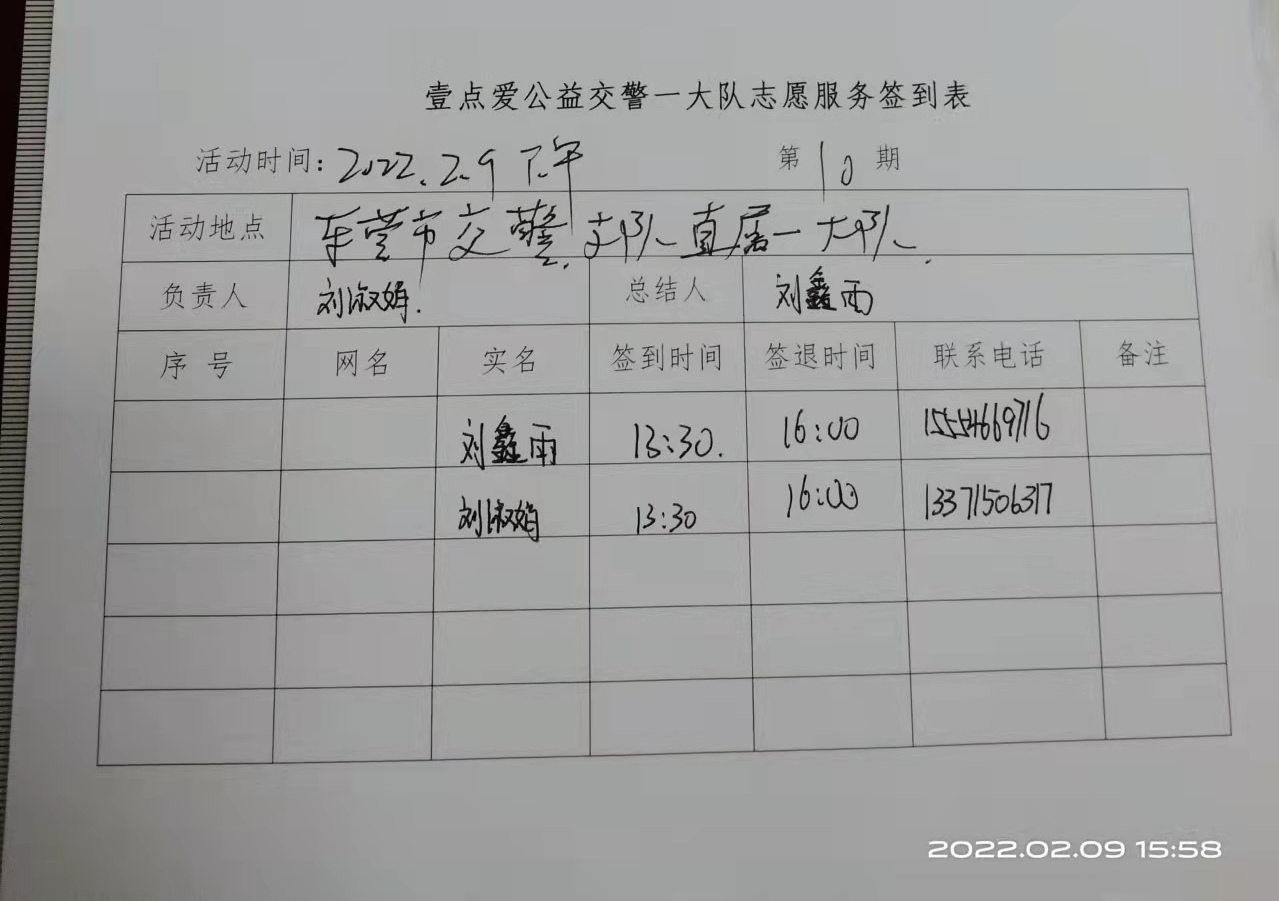 壹点爱公益交警一大队志愿服务签到表
活动时间：2022.2.9 下午 第10期
活动地点 东营市交警支队直属一大队.
负责人 刘淑娟. 总结人 刘鑫雨
序号 网名 实名 签到时间 签退时间 联系电话 备注
刘鑫雨 13:30. 16:00 15554669716
刘淑娟 13:30 16:00 13371506317
2022.02.09 15:58